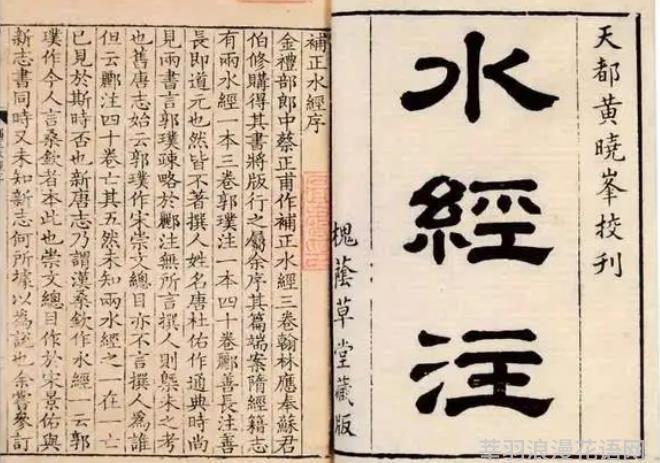 天都黄曉峯挍刊
水經注
槐蔭草堂藏版
補正水經序
金禮部郎中蔡正甫作補正水經三卷翰林應奉蘇君
伯修購得其書將版行之屬余序其篇端案隋經籍志
有兩水經一本三卷郭璞注一本四十卷酈善長注善
長即道元也然皆不著撰人姓名唐杜佑作通典時尚
見兩書言郭璞疎略於酈注無所言撰人則槩未之考
也舊唐志始云郭璞作宋崇文總目亦不言撰人為誰
但云酈注四十卷亡其五然未知兩水經之一在一亡
已見於斯時否也新唐志乃謂漢桑欽作水經一云郭
璞作今人言桑欽者本此也崇文總目作於宋景佑與
新志書同時又未知新志何所據以為說也余嘗參訂
華羽浪漫花语网